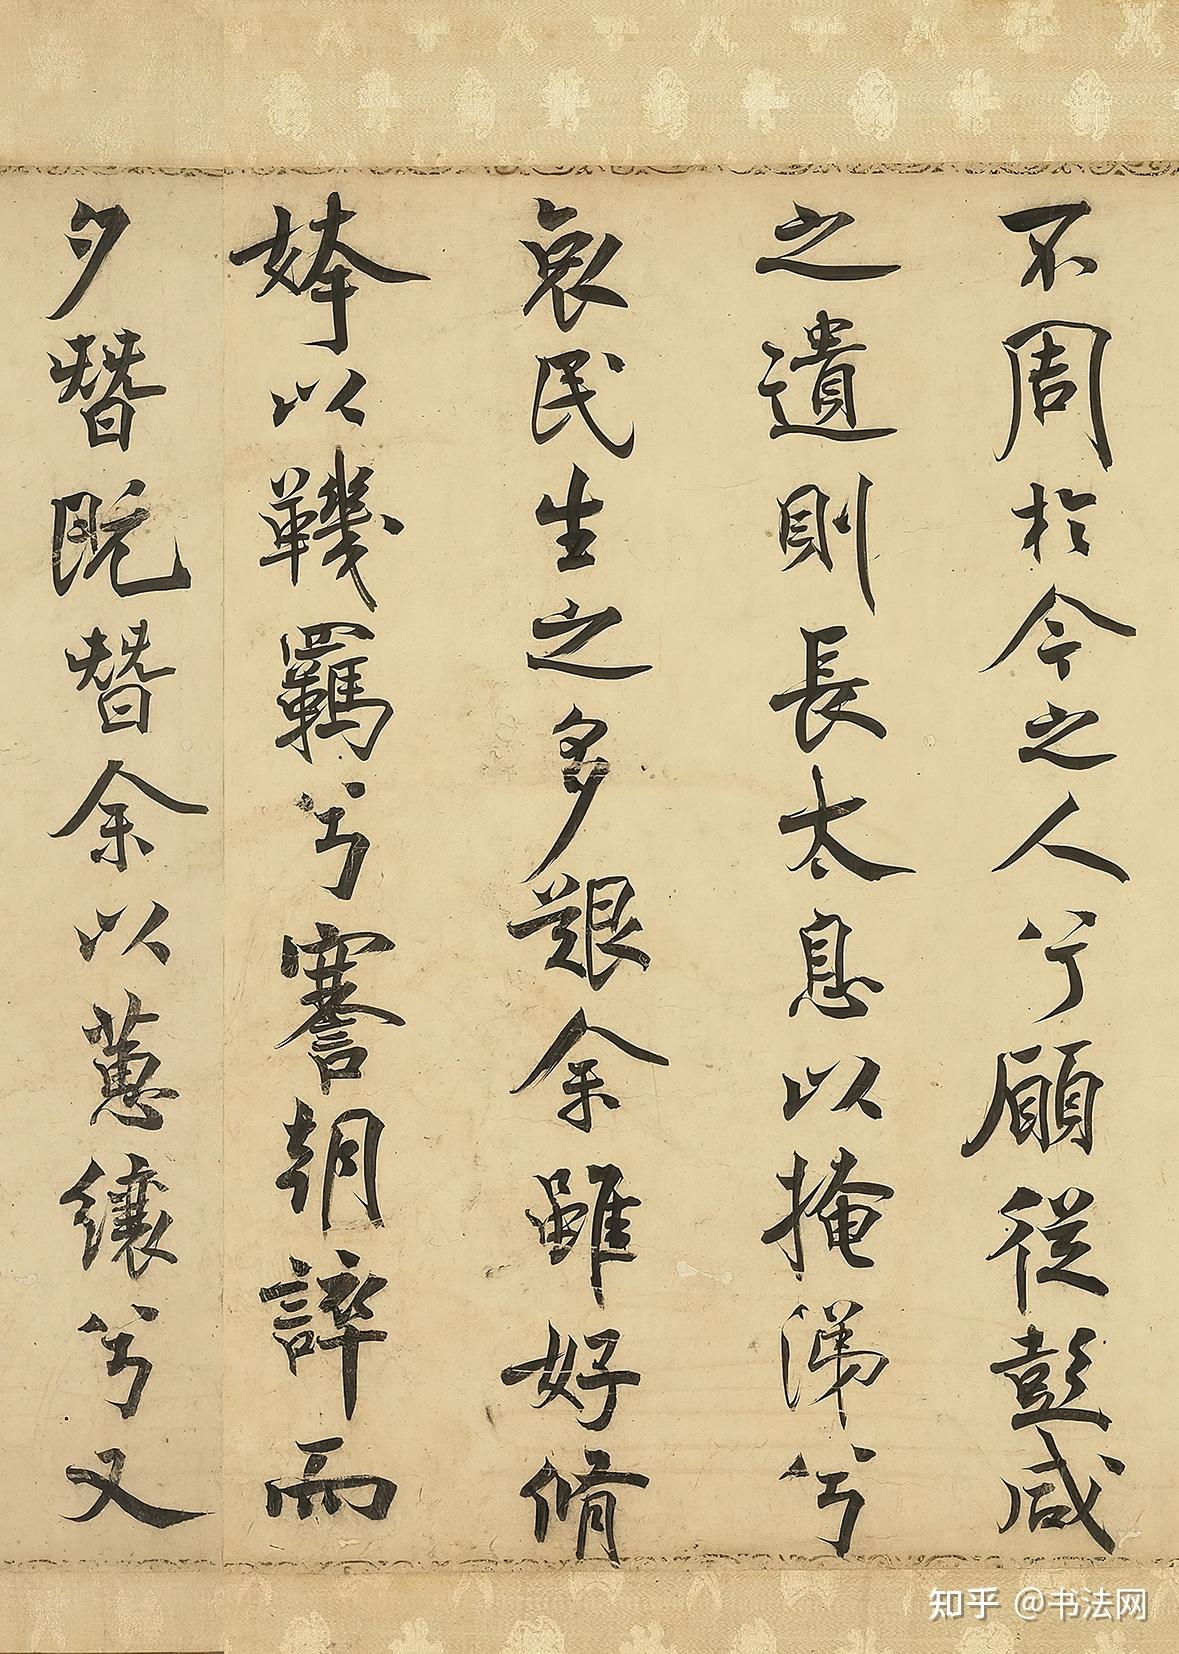 不周於今之人兮願從彭咸
之遺則長太息以掩涕兮
哀民生之多艱余雖好脩
姱以鞿羈兮謇朝誶而
夕替既替余以蕙纕兮又
知乎 @书法网